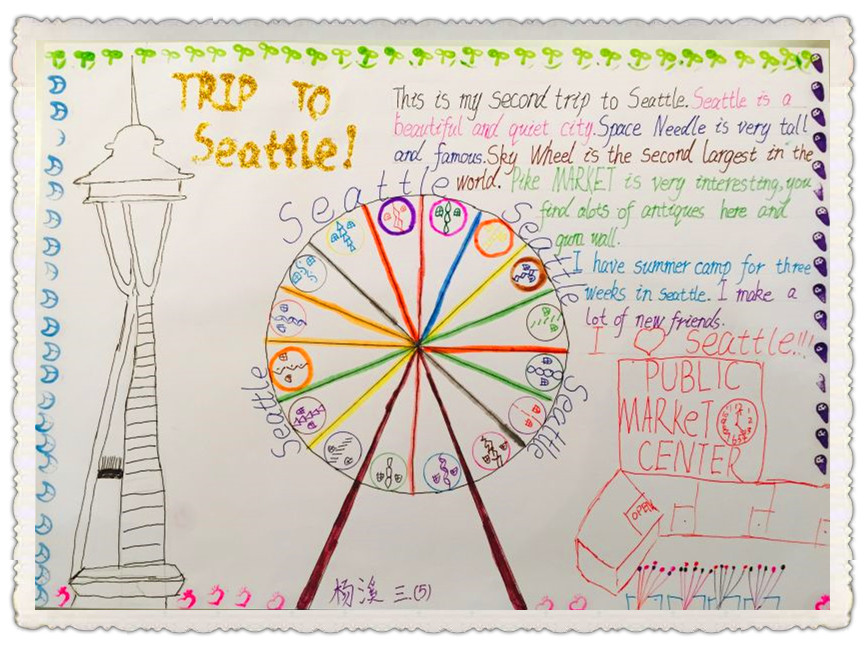 TRIP TO
Seattle!
This is my second trip to Seattle. Seattle is a
beautiful and quiet city. Space Needle is very tall
and famous. Sky Wheel is the second largest in the
world. Pike MARKET is very interesting, you
find alots of antiques here and
gum wall.
I have summer camp for three
weeks in seattle. I make a
lot of new friends.
I Seattle!!!
Seattle
Seattle
Seattle
Seattle
PUBLIC
MARKET
CENTER
OPEN
杨溪 三.(5)